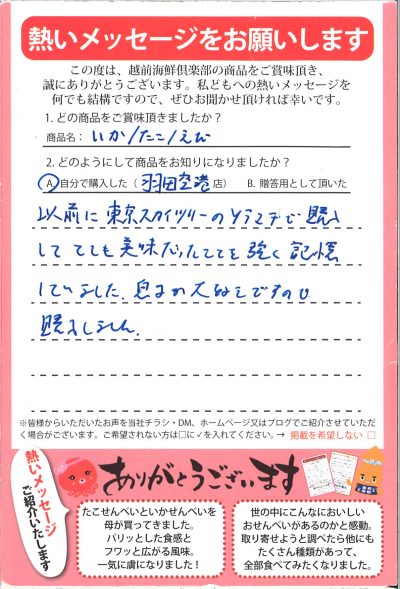 熱いメッセージをお願いします
この度は、越前海鮮倶楽部の商品をご賞味頂き、
誠にありがとうございます。私どもへの熱いメッセージを
何でも結構ですので、ぜひお聞かせ頂ければ幸いです。
1. どの商品をご賞味頂きましたか？
商品名： いか/たこ/えび
2. どのようにして商品をお知りになりましたか？
A. 自分で購入した（ 羽田空港 店） B. 贈答用として頂いた
以前に東京スカイツリーのソラマチで購入
して とても美味だったことを強く記憶
していました。息子が大好きですので
購入しました。
※皆様からいただいたお声を当社チラシ・DM、ホームページ又はブログでご紹介させていただ
く場合がございます。ご希望されない方は□に✓を入れてください。→ 掲載を希望しない □
熱いメッセージ
ご紹介いたします
ありがとうございます
たこせんべいといかせんべいを
母が買ってきました。
パリッとした食感と
フワッと広がる風味。
一気に虜になりました！
世の中にこんなにおいしい
おせんべいがあるのかと感動。
取り寄せようと調べたら他にも
たくさん種類があって、
全部食べてみたくなりました。